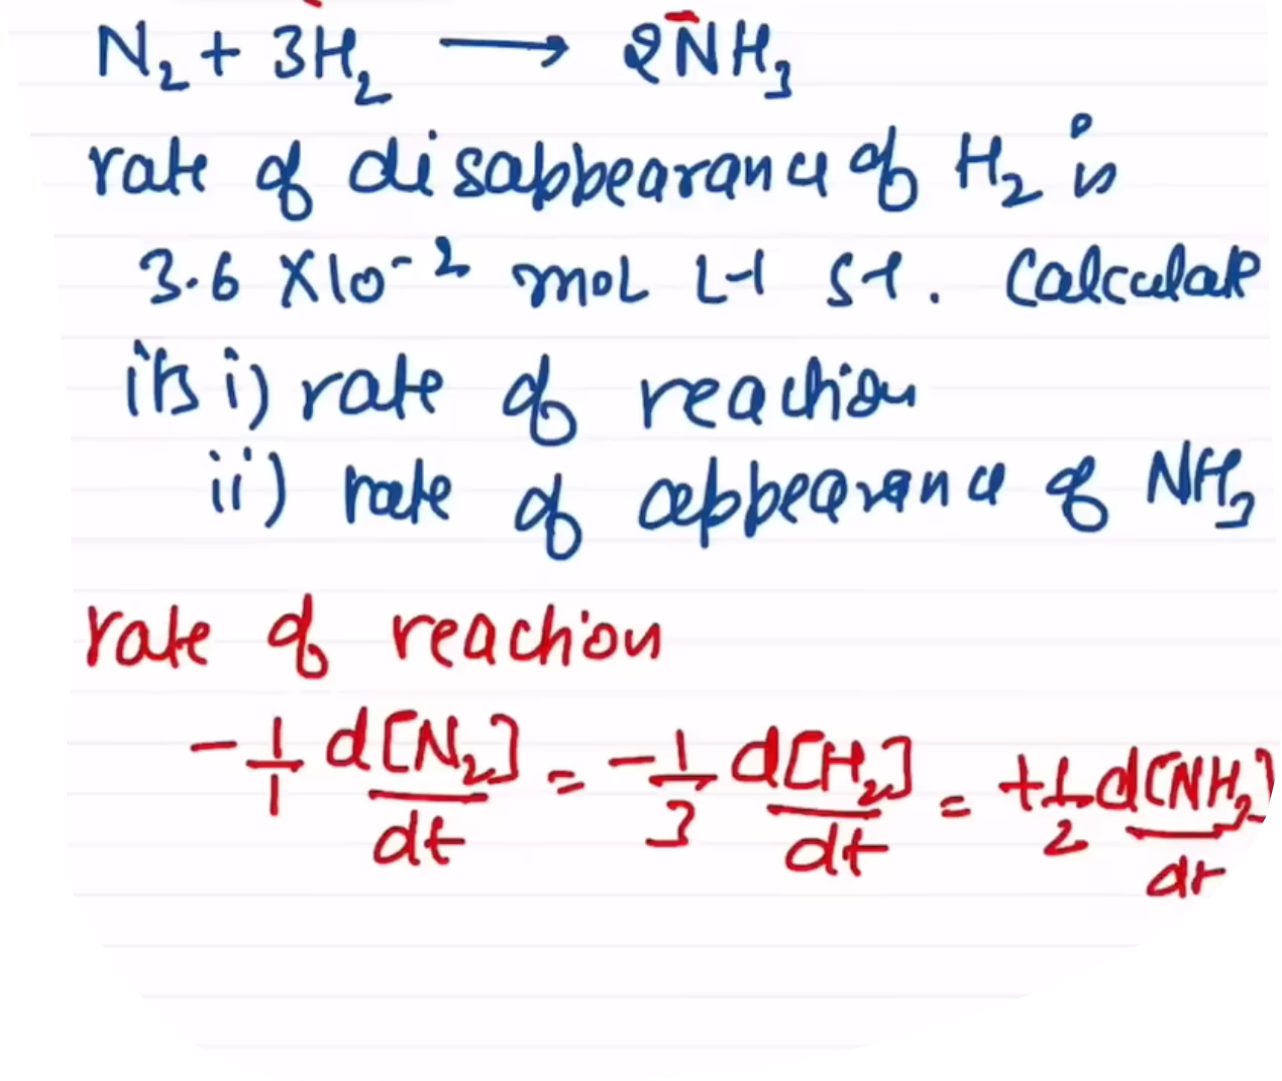 N₂ + 3H₂ ⟶ 2NH₃
rate of disappearance of H₂ is
3.6 X10⁻² mol L-1 s-1. Calculate
its i) rate of reaction
ii) rate of appearance of NH₃
rate of reaction
-1/1 d[N₂]/dt = -1/3 d[H₂]/dt = +1/2 d[NH₃]/dt